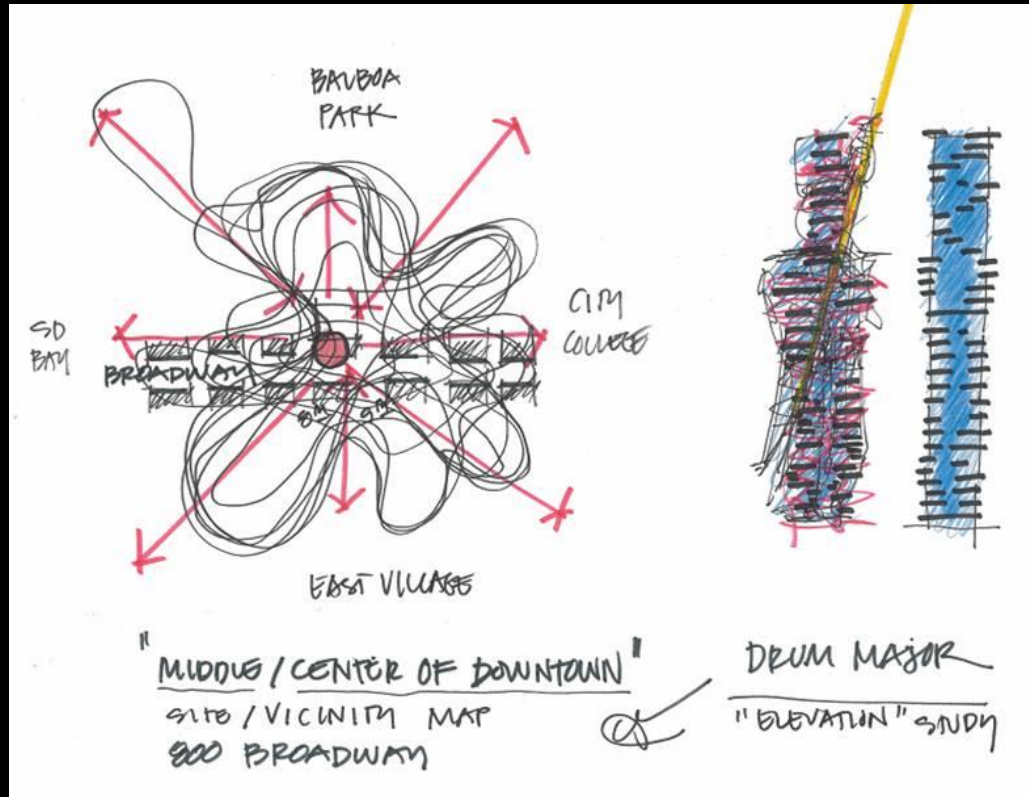 BALBOA
PARK
SD
BAY
BROADWAY
CITY
COLLEGE
8TH 9TH
EAST VILLAGE
"MIDDLE / CENTER OF DOWNTOWN"
SITE / VICINITY MAP
800 BROADWAY
DRUM MAJOR
"ELEVATION" STUDY